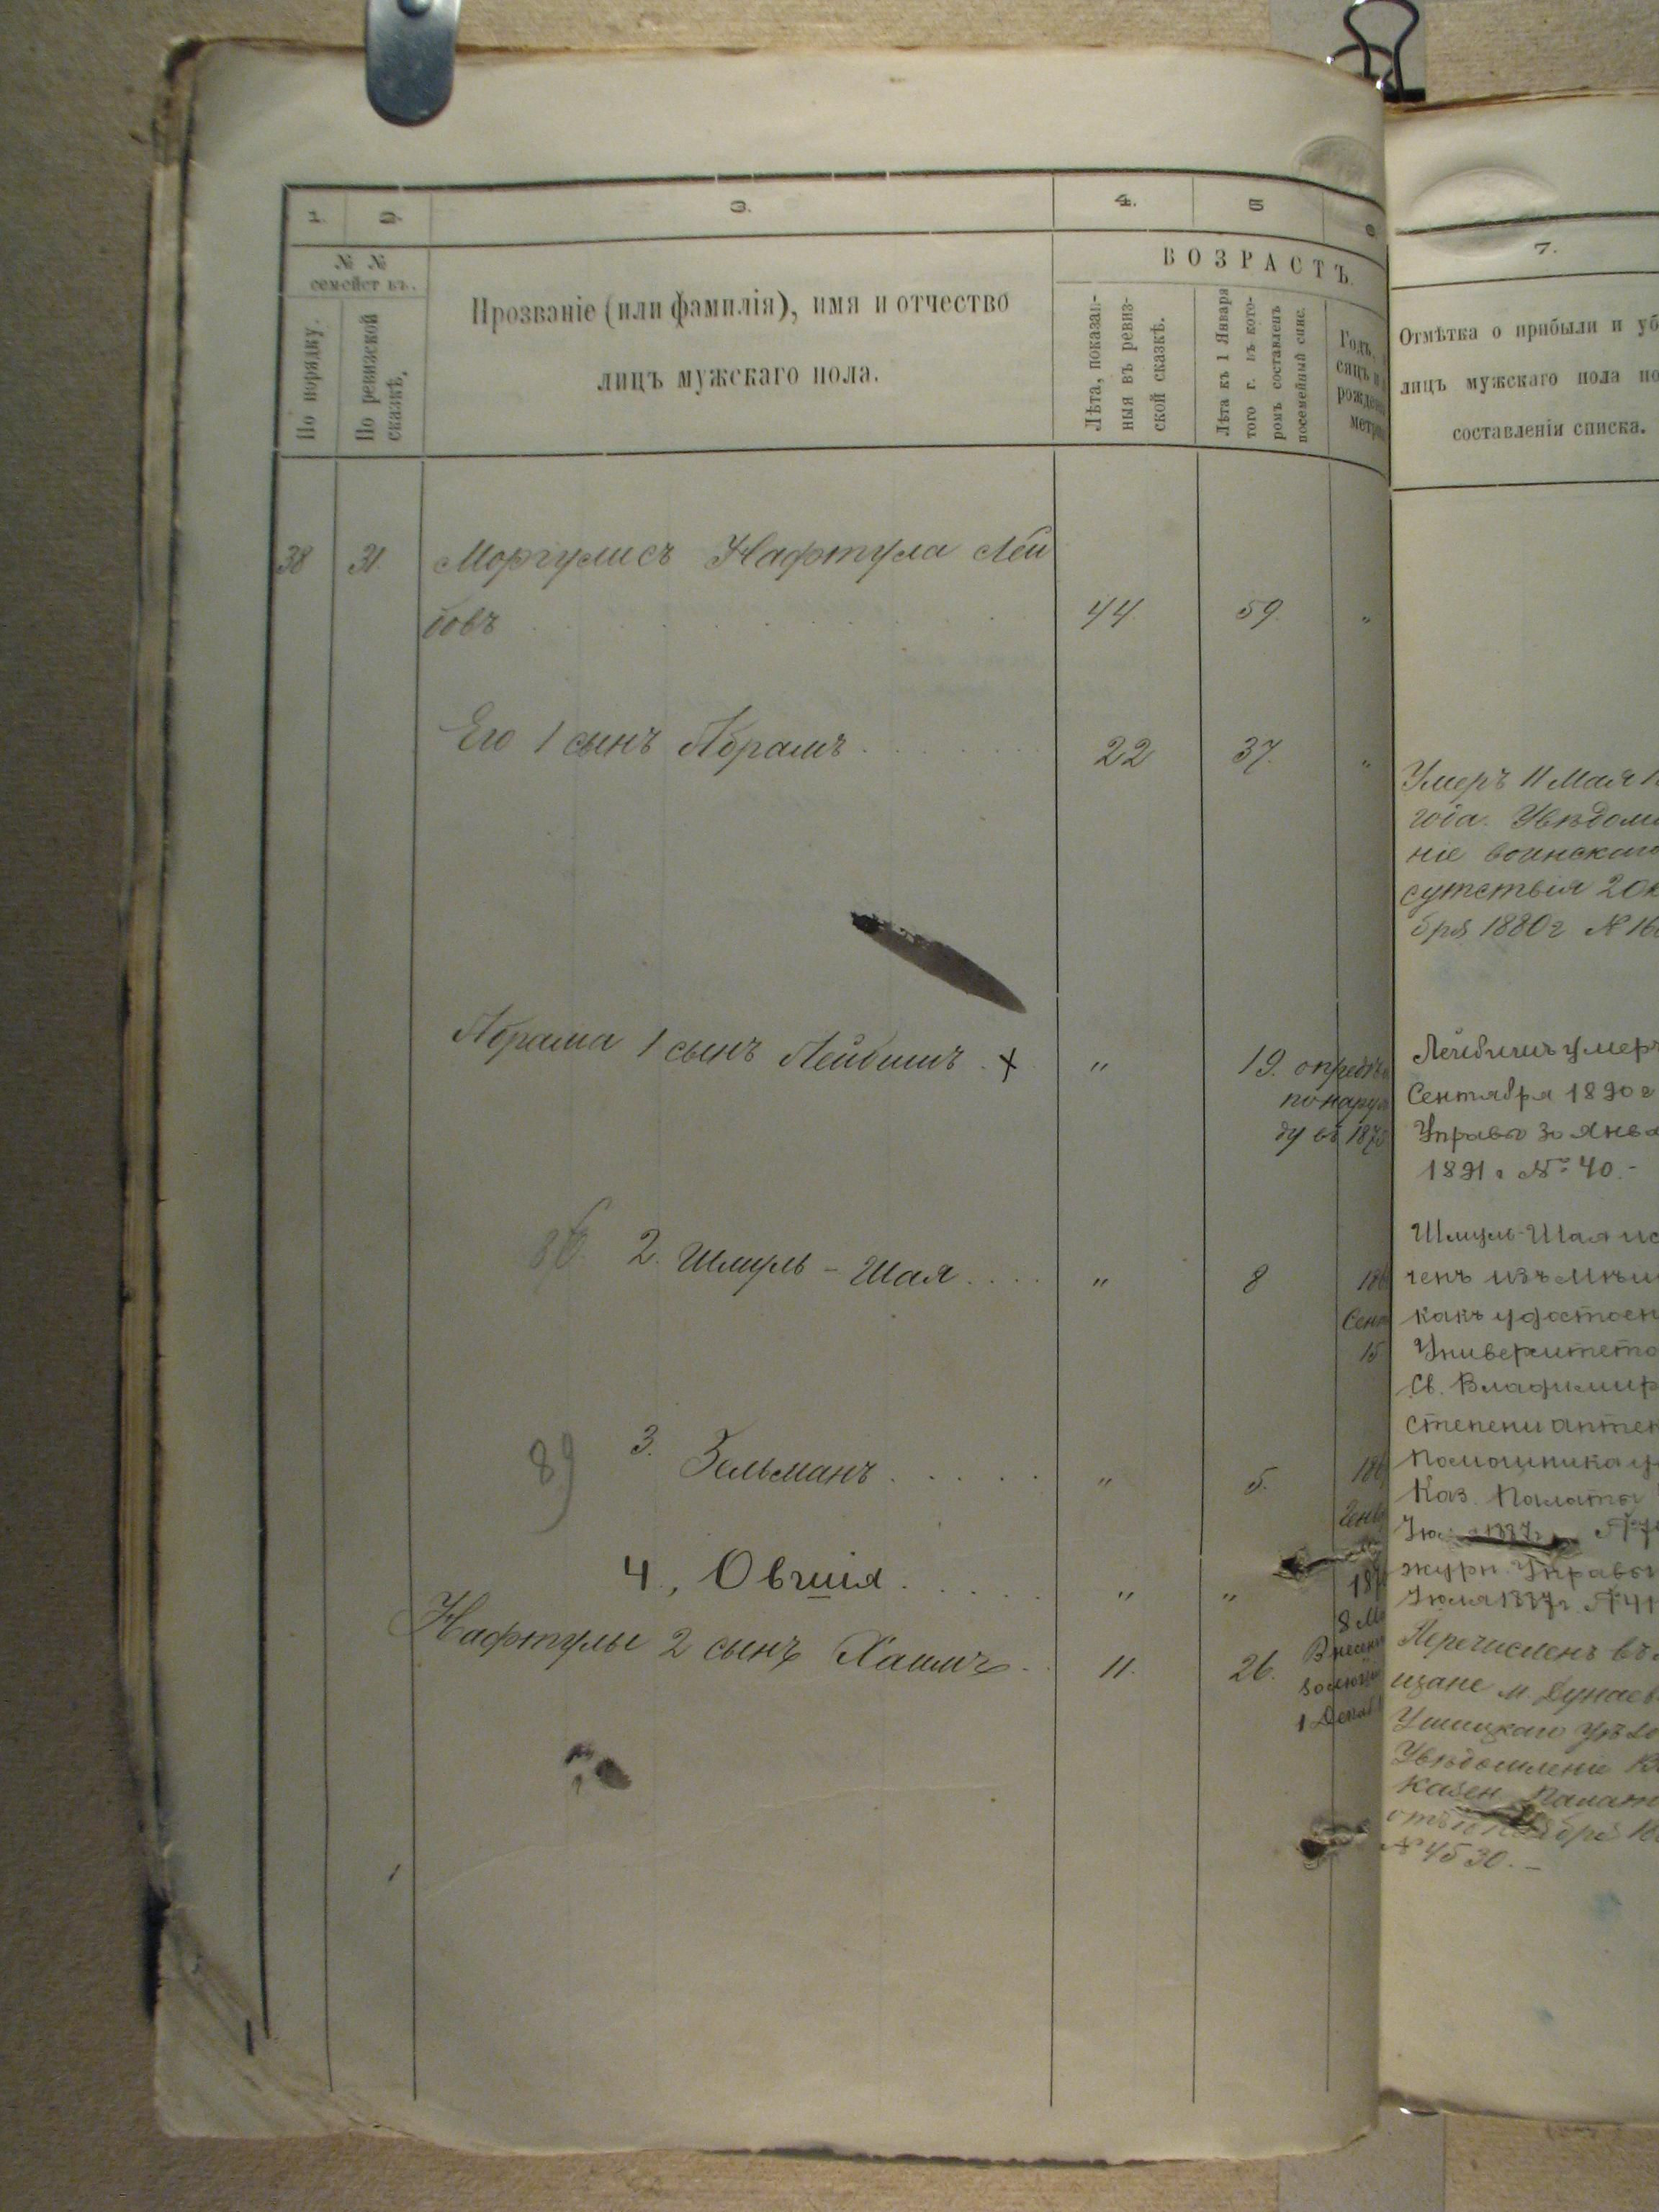 1. 2. 3. 4. 5 6
№ №
семействъ.
По порядку.
По ревизской
сказкѣ.
Прозваніе (или фамилія), имя и отчество
лицъ мужскаго пола.
ВОЗРАСТЪ.
Лѣта, показан-
ныя въ ревиз-
ской сказкѣ.
Лѣта къ 1 Января
того г. въ кото-
ромъ составленъ
посемейный спис.
Годъ,
сяцъ и
рожден
метри
38 31. Моргулисъ Нафтула Лей
бовъ 44. 59. "
Его 1 сынъ Абрамъ 22 37. "
Абрама 1 сынъ Лейбишъ . + " 19. опредѣ
по
ду въ 187
2. Шмуль - Шая " 8 186
Сент
15
89 3. Зельманъ " 5. 186
Генв
4., Овшія " " 187
8 Ма
Нафтулы 2 сынъ Хаимъ 11. 26. Внесенъ
1 Декаб
7.
Отмѣтка о прибыли и уб
лицъ мужскаго пола по
составленіи списка.
Умеръ 11 Мая 1
года. Увѣдомл
ніе воинскаго
сутствія 20
бря 1880 г № 16
Лейбишъ умеръ
Сентября 1890 г
Управы 30 Янва
1891 г № 40.-
Шмуль-Шая ис
ченъ изъ мѣщ
какъ удостоен
Университето
Св. Владимир
степени аптек
помощника у
Каз. Палаты
Ію 1887 г №7
журн. Управы
Іюля 1887 г. № 41
Перечисленъ въ
щане м. Дунаев
Ушицкаго уѣзд
Увѣдомленіе К
казен. Палат
отъ бря 18
№ 4530.-